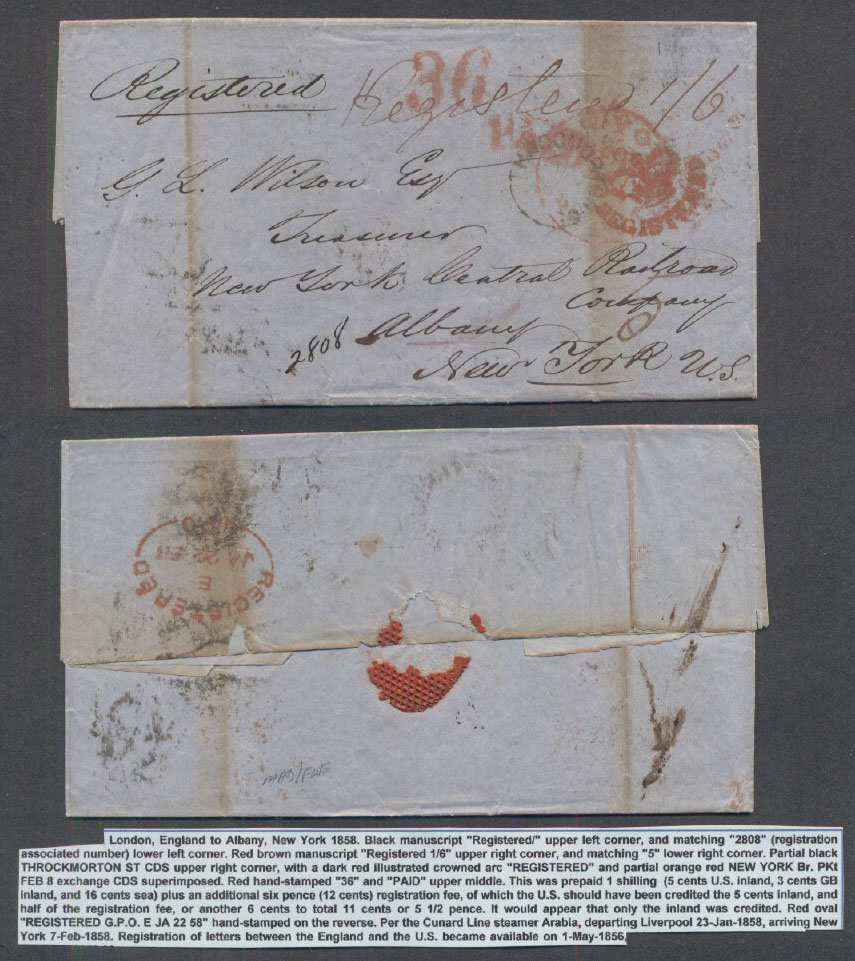 Registered
36
Registered 1/6
PAID
REGISTERED
G. L. Wilson Esq
Treasurer
New York Central Railroad
Company
Albany
2808
New York U.S.
REGISTERED
E
JA 22 58
London, England to Albany, New York 1858. Black manuscript "Registered/" upper left corner, and matching "2808" (registration
associated number) lower left corner. Red brown manuscript "Registered 1/6" upper right corner, and matching "5" lower right corner. Partial black
THROCKMORTON ST CDS upper right corner, with a dark red illustrated crowned arc "REGISTERED" and partial orange red NEW YORK Br. PKt
FEB 8 exchange CDS superimposed. Red hand-stamped "36" and "PAID" upper middle. This was prepaid 1 shilling (5 cents U.S. inland, 3 cents GB
inland, and 16 cents sea) plus an additional six pence (12 cents) registration fee, of which the U.S. should have been credited the 5 cents inland, and
half of the registration fee, or another 6 cents to total 11 cents or 5 1/2 pence. It would appear that only the inland was credited. Red oval
"REGISTERED G.P.O. E JA 22 58" hand-stamped on the reverse. Per the Cunard Line steamer Arabia, departing Liverpool 23-Jan-1858, arriving New
York 7-Feb-1858. Registration of letters between the England and the U.S. became available on 1-May-1856.